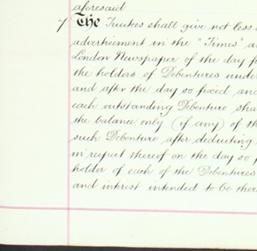 aforesaid
7 The Trustees shall give not less
advertisement in the "Times" a
London Newspaper of the day f
the holders of Debentures unde
and after the day so fixed an
each outstanding Debenture sha
the balance only (if any) of th
such Debenture after deducting
in respect thereof on the day so f
holder of each of the Debentures
and interest intended to be there